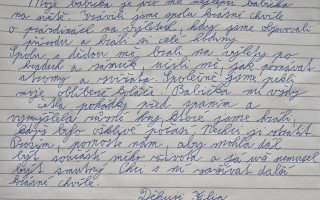 Moje babička je pro mě nejlepší babička
na světě. Trávili jsme spolu krásné chvíle
o prázdninách na výletech, kdy jsme objevovali
přírodu a hráli si celé hodiny.
Spolu s dědou mě brali na výlety po
hradech a zámcích, učili mě jak poznávat
stromy a zvířata. Společně jsme pekli
moje oblíbené koláče. Babička mi vždy
četla pohádky před spaním a
vymýšlela různé hry, které jsme hráli,
když bylo ošklivé počasí. Nechci ji ztratit.
Prosím, pomozte nám, aby mohla dál
být součástí mého života a já už nemusel
být smutný. Chci s ní zažívat další
krásné chvíle.
Děkuji